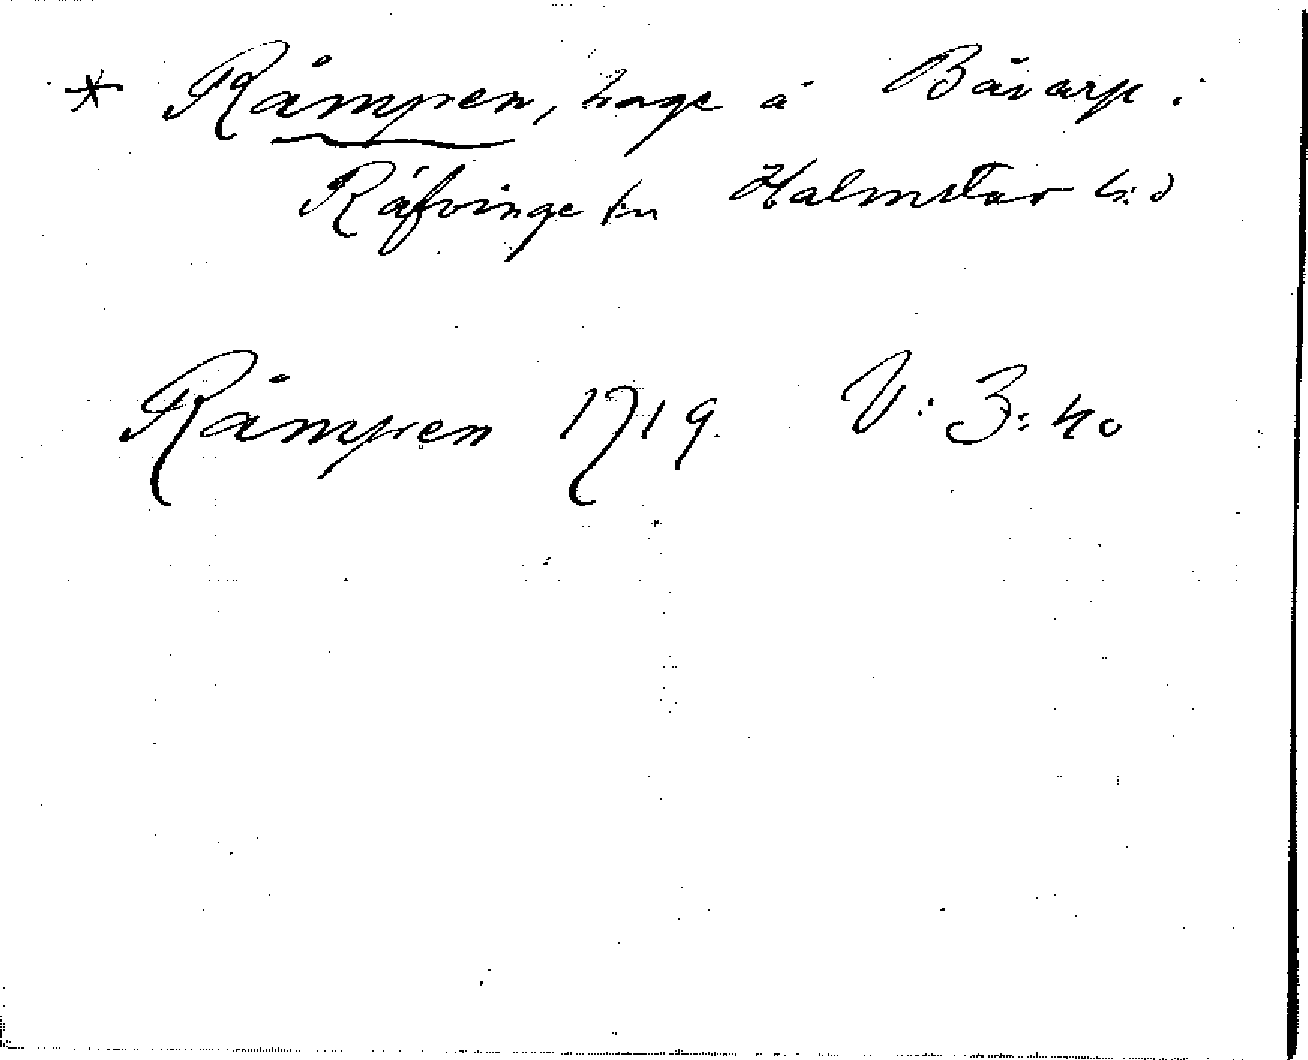 * Råmpen, hage å Bäarp i
Räfvinge sn Halmstad h:d
Råmpen 1719. V: 3: 40